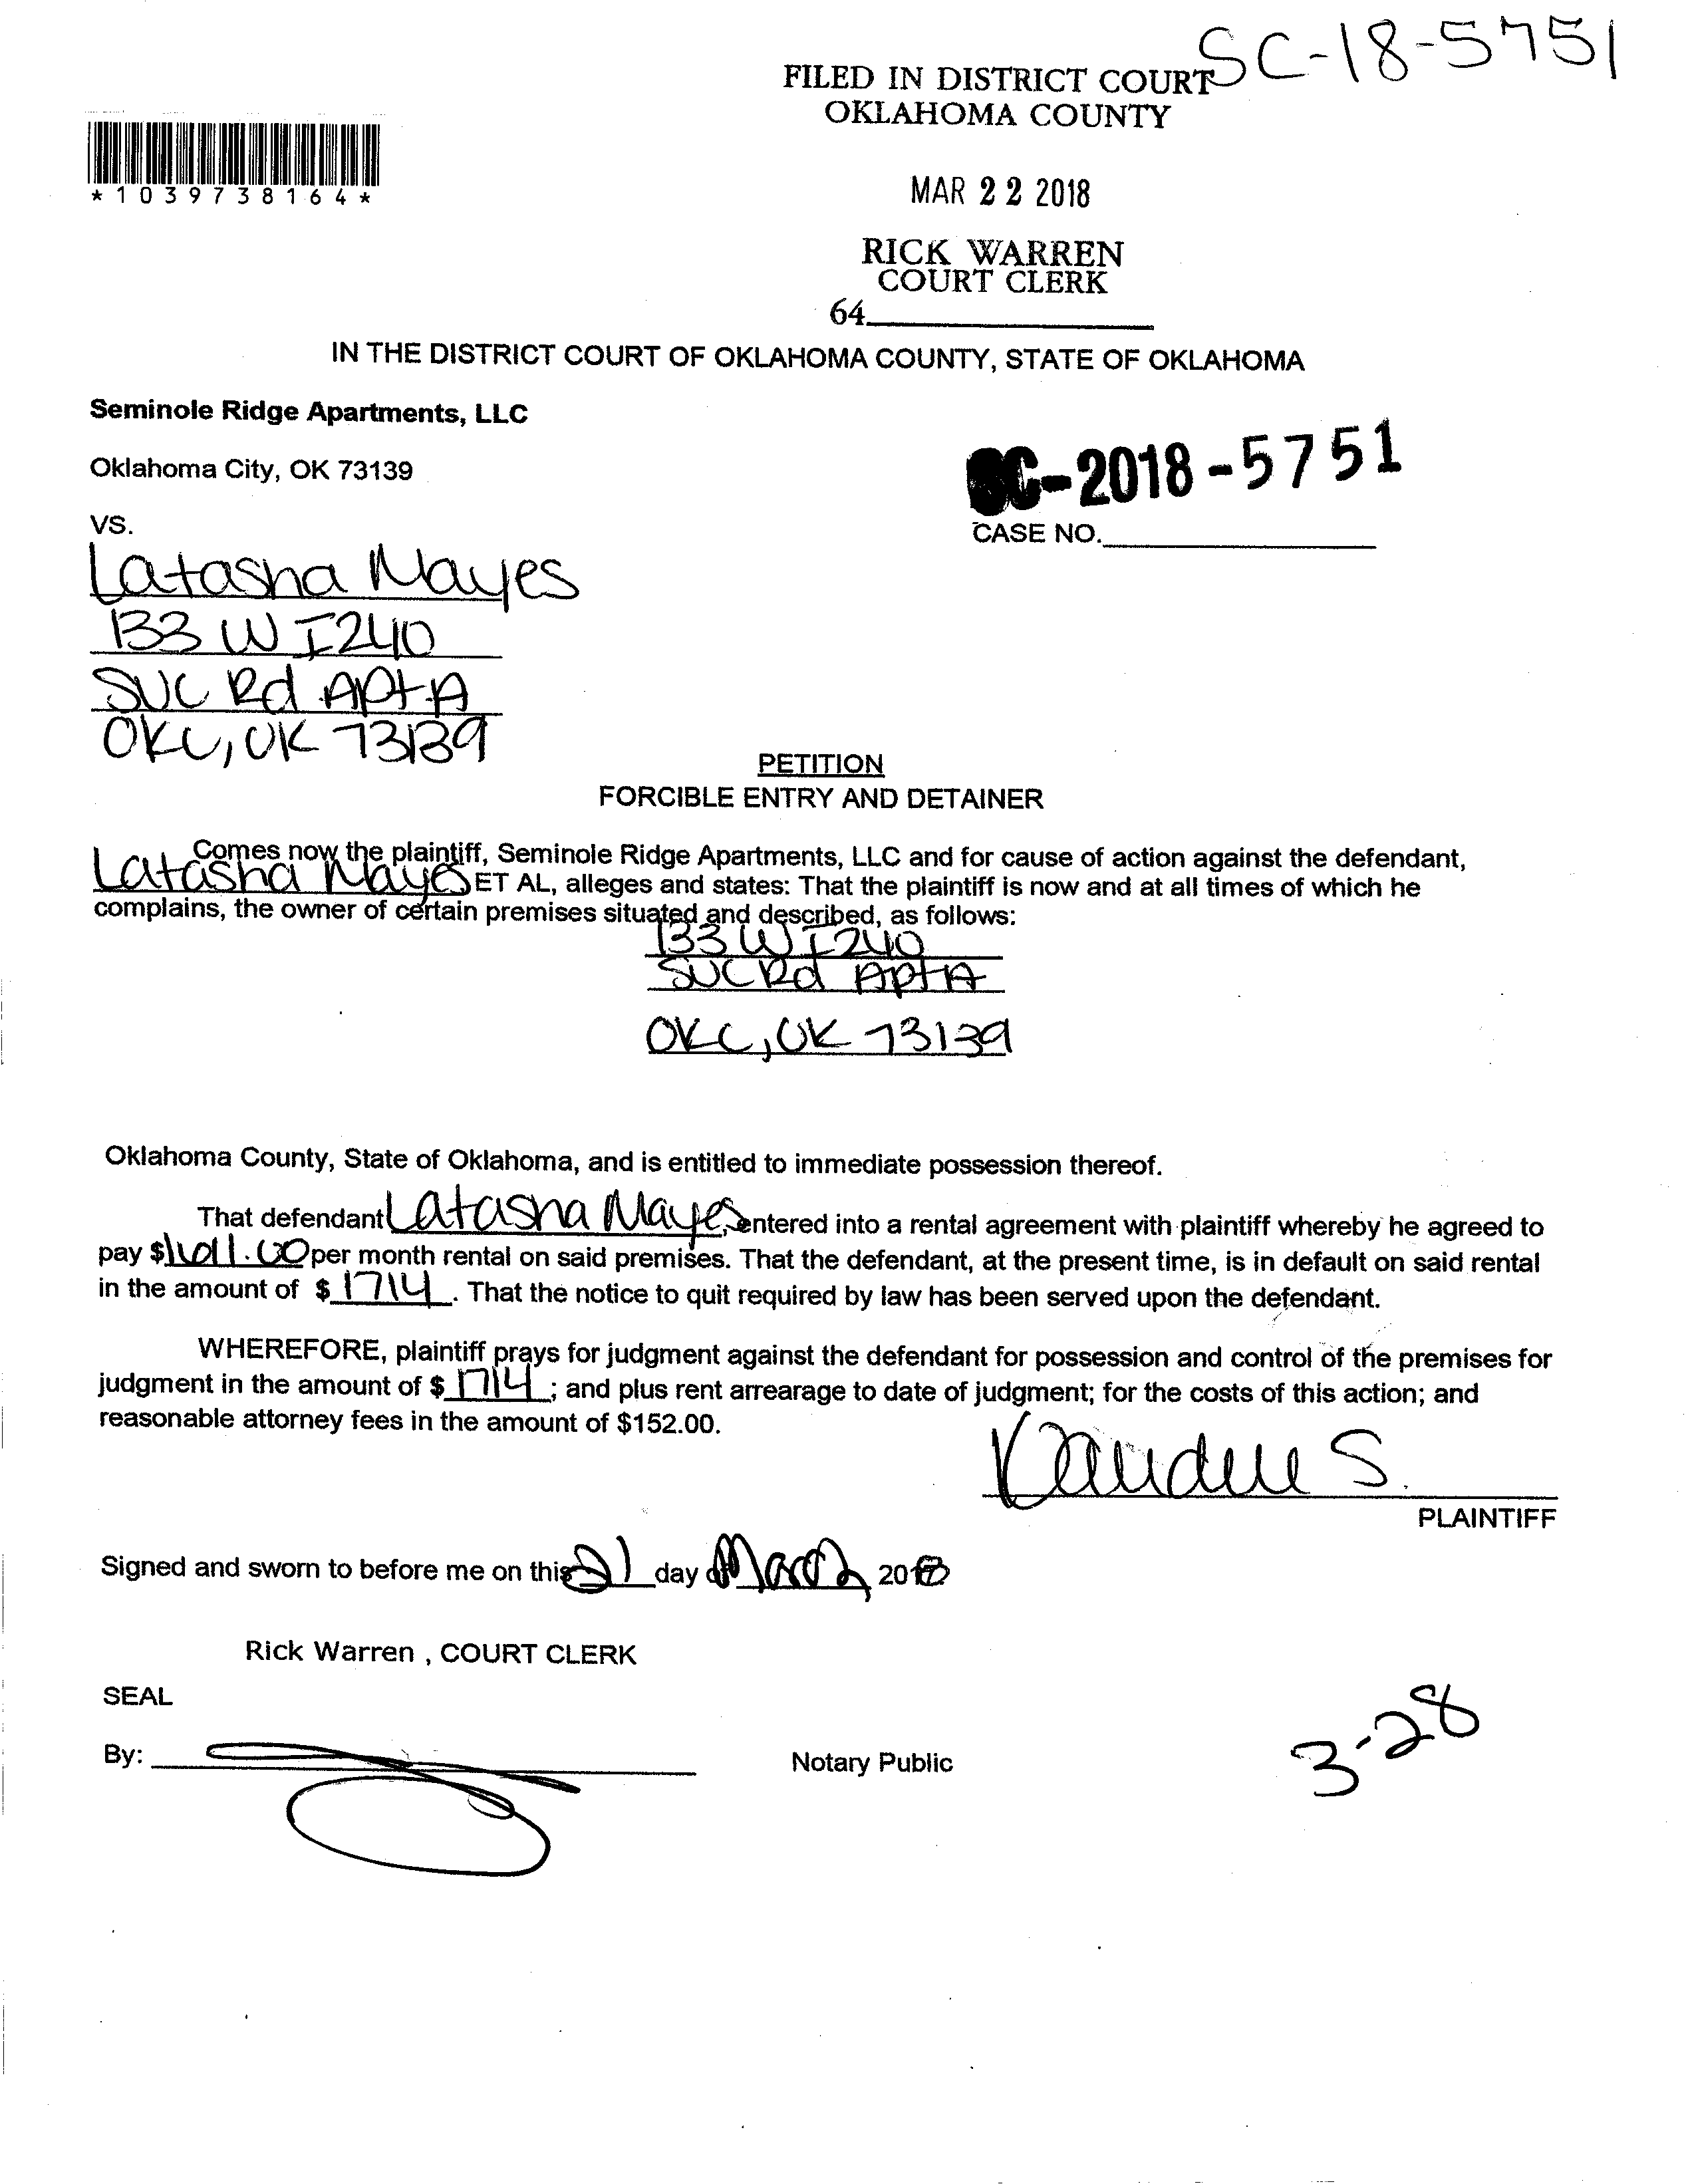 SC-18-5751
FILED IN DISTRICT COURT
OKLAHOMA COUNTY
*1039738164*
MAR 22 2018
RICK WARREN
COURT CLERK
64
IN THE DISTRICT COURT OF OKLAHOMA COUNTY, STATE OF OKLAHOMA
Seminole Ridge Apartments, LLC
Oklahoma City, OK 73139
SC-2018-5751
VS.
CASE NO.
Latasha Mayes
133 W I240
SVC Rd Apt A
OKC, OK 73139
PETITION
FORCIBLE ENTRY AND DETAINER
Comes now the plaintiff, Seminole Ridge Apartments, LLC and for cause of action against the defendant,
Latasha Mayes ET AL, alleges and states: That the plaintiff is now and at all times of which he
complains, the owner of certain premises situated and described, as follows:
133 W I240
SVC Rd Apt A
OKC, OK 73139
Oklahoma County, State of Oklahoma, and is entitled to immediate possession thereof.
That defendant Latasha Mayes, entered into a rental agreement with plaintiff whereby he agreed to
pay $ per month rental on said premises. That the defendant, at the present time, is in default on said rental
in the amount of $ 1714. That the notice to quit required by law has been served upon the defendant.
WHEREFORE, plaintiff prays for judgment against the defendant for possession and control of the premises for
judgment in the amount of $ 1714; and plus rent arrearage to date of judgment; for the costs of this action; and
reasonable attorney fees in the amount of $152.00.
S.
PLAINTIFF
Signed and sworn to before me on this 21 day of March 2018
Rick Warren , COURT CLERK
SEAL
By:
Notary Public
3-28